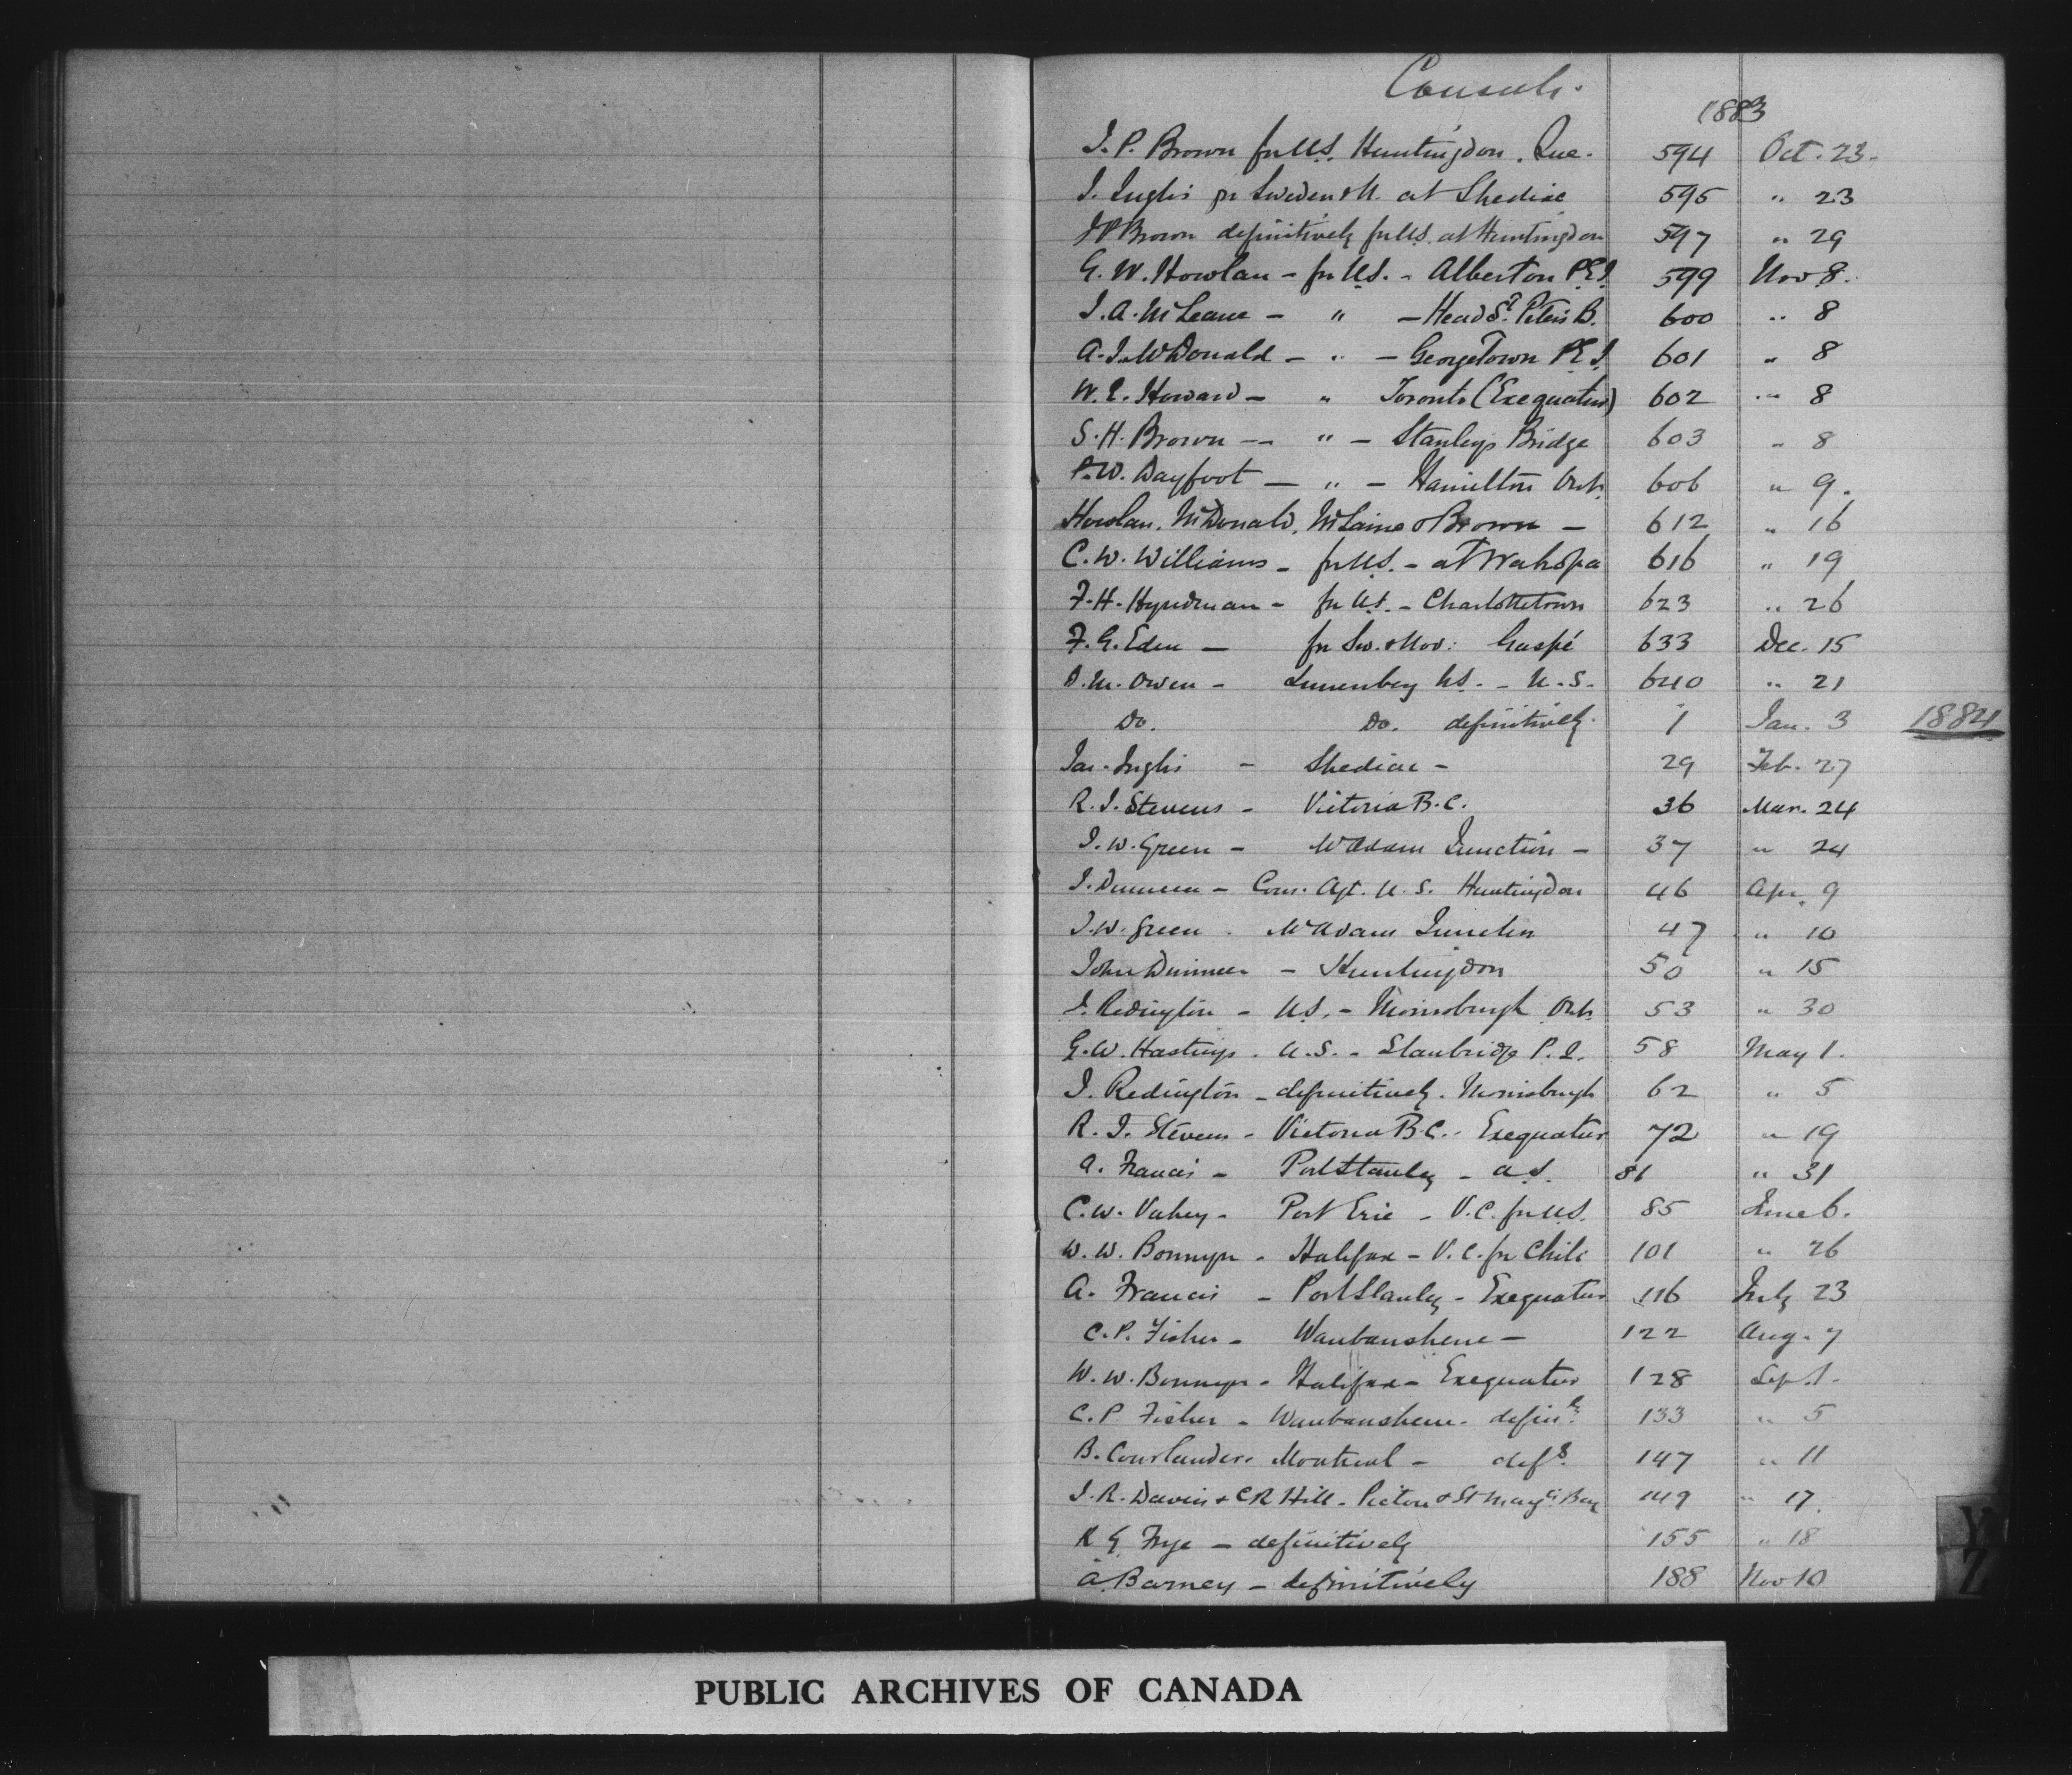 Consuls.
1883
J. P. Brown for U.S. Huntingdon. Que. 594 Oct. 23.
J. Inglis for Sweden & N. at Shediac 595 " 23
J P Brown definitively for U.S. at Huntingdon 597 " 29
G. W. Howlan - for U.S. - Alberton P.E.I. 599 Nov 8.
J. A. McLeane - " - Head St. Peters B. 600 " 8
A. J. McDonald - " - Georgetown P.E.I. 601 " 8
W. E. Howard - " Toronto (Exequatur) 602 " 8
S. H. Brown - " - Stanleys Bridge 603 " 8
P. W. Dayfoot - " - Hamilton Ont. 606 " 9.
Howlan, McDonald, McLaine & Brown - 612 " 16
C. W. Williams - for U.S. - at 616 " 19
F. H. Hyndman - for U.S. - Charlottetown 623 " 26
F. G. Eden - for Sw. & Nor: Gaspé 633 Dec. 15
D. M. Owen - Lunenberg N.S. - U.S. 640 " 21
Do. Do. definitively 1 Jan. 3 1884
Jas. Inglis - Shediac - 29 Feb. 27
R. J. Stevens - Victoria B.C. 36 Mar. 24
J. W. Green - McAdam Junction - 37 " 24
J. - Con. Agt. U.S. Huntingdon 46 Apr. 9
J. W. Green - McAdam Junction 47 " 10
John - Huntingdon 50 " 15
J. Redington - U.S. - Morrisburgh Ont. 53 " 30
G. W. Hastings - U.S. - Stanbridge P.Q. 58 May 1.
J. Redington - definitively - Morrisburgh 62 " 5
R. J. Stevens - Victoria B.C. - Exequatur 72 " 19
A. Francis - Port Stanley - U.S. 81 " 31
C. W. Vahey - Fort Erie - V.C. for U.S. 85 June 6.
W. W. Bonnyn - Halifax - V.C. for Chili 101 " 26
A. Francis - Port Stanley - Exequatur 116 July 23
C. P. Fisher - Waubaushene - 122 Aug. 7
W. W. Bonnyn - Halifax - Exequatur 128 Sep. 1.
C. P. Fisher - Waubaushene - definly. 133 " 5
B. Courlander - Montreal - defly. 147 " 11
J. R. Davies & C R Hill - Pictou & St Mary's Bay 149 " 17.
R G Frye - definitively 155 " 18
A Barney - definitively 188 Nov 10
Y
Z
PUBLIC ARCHIVES OF CANADA